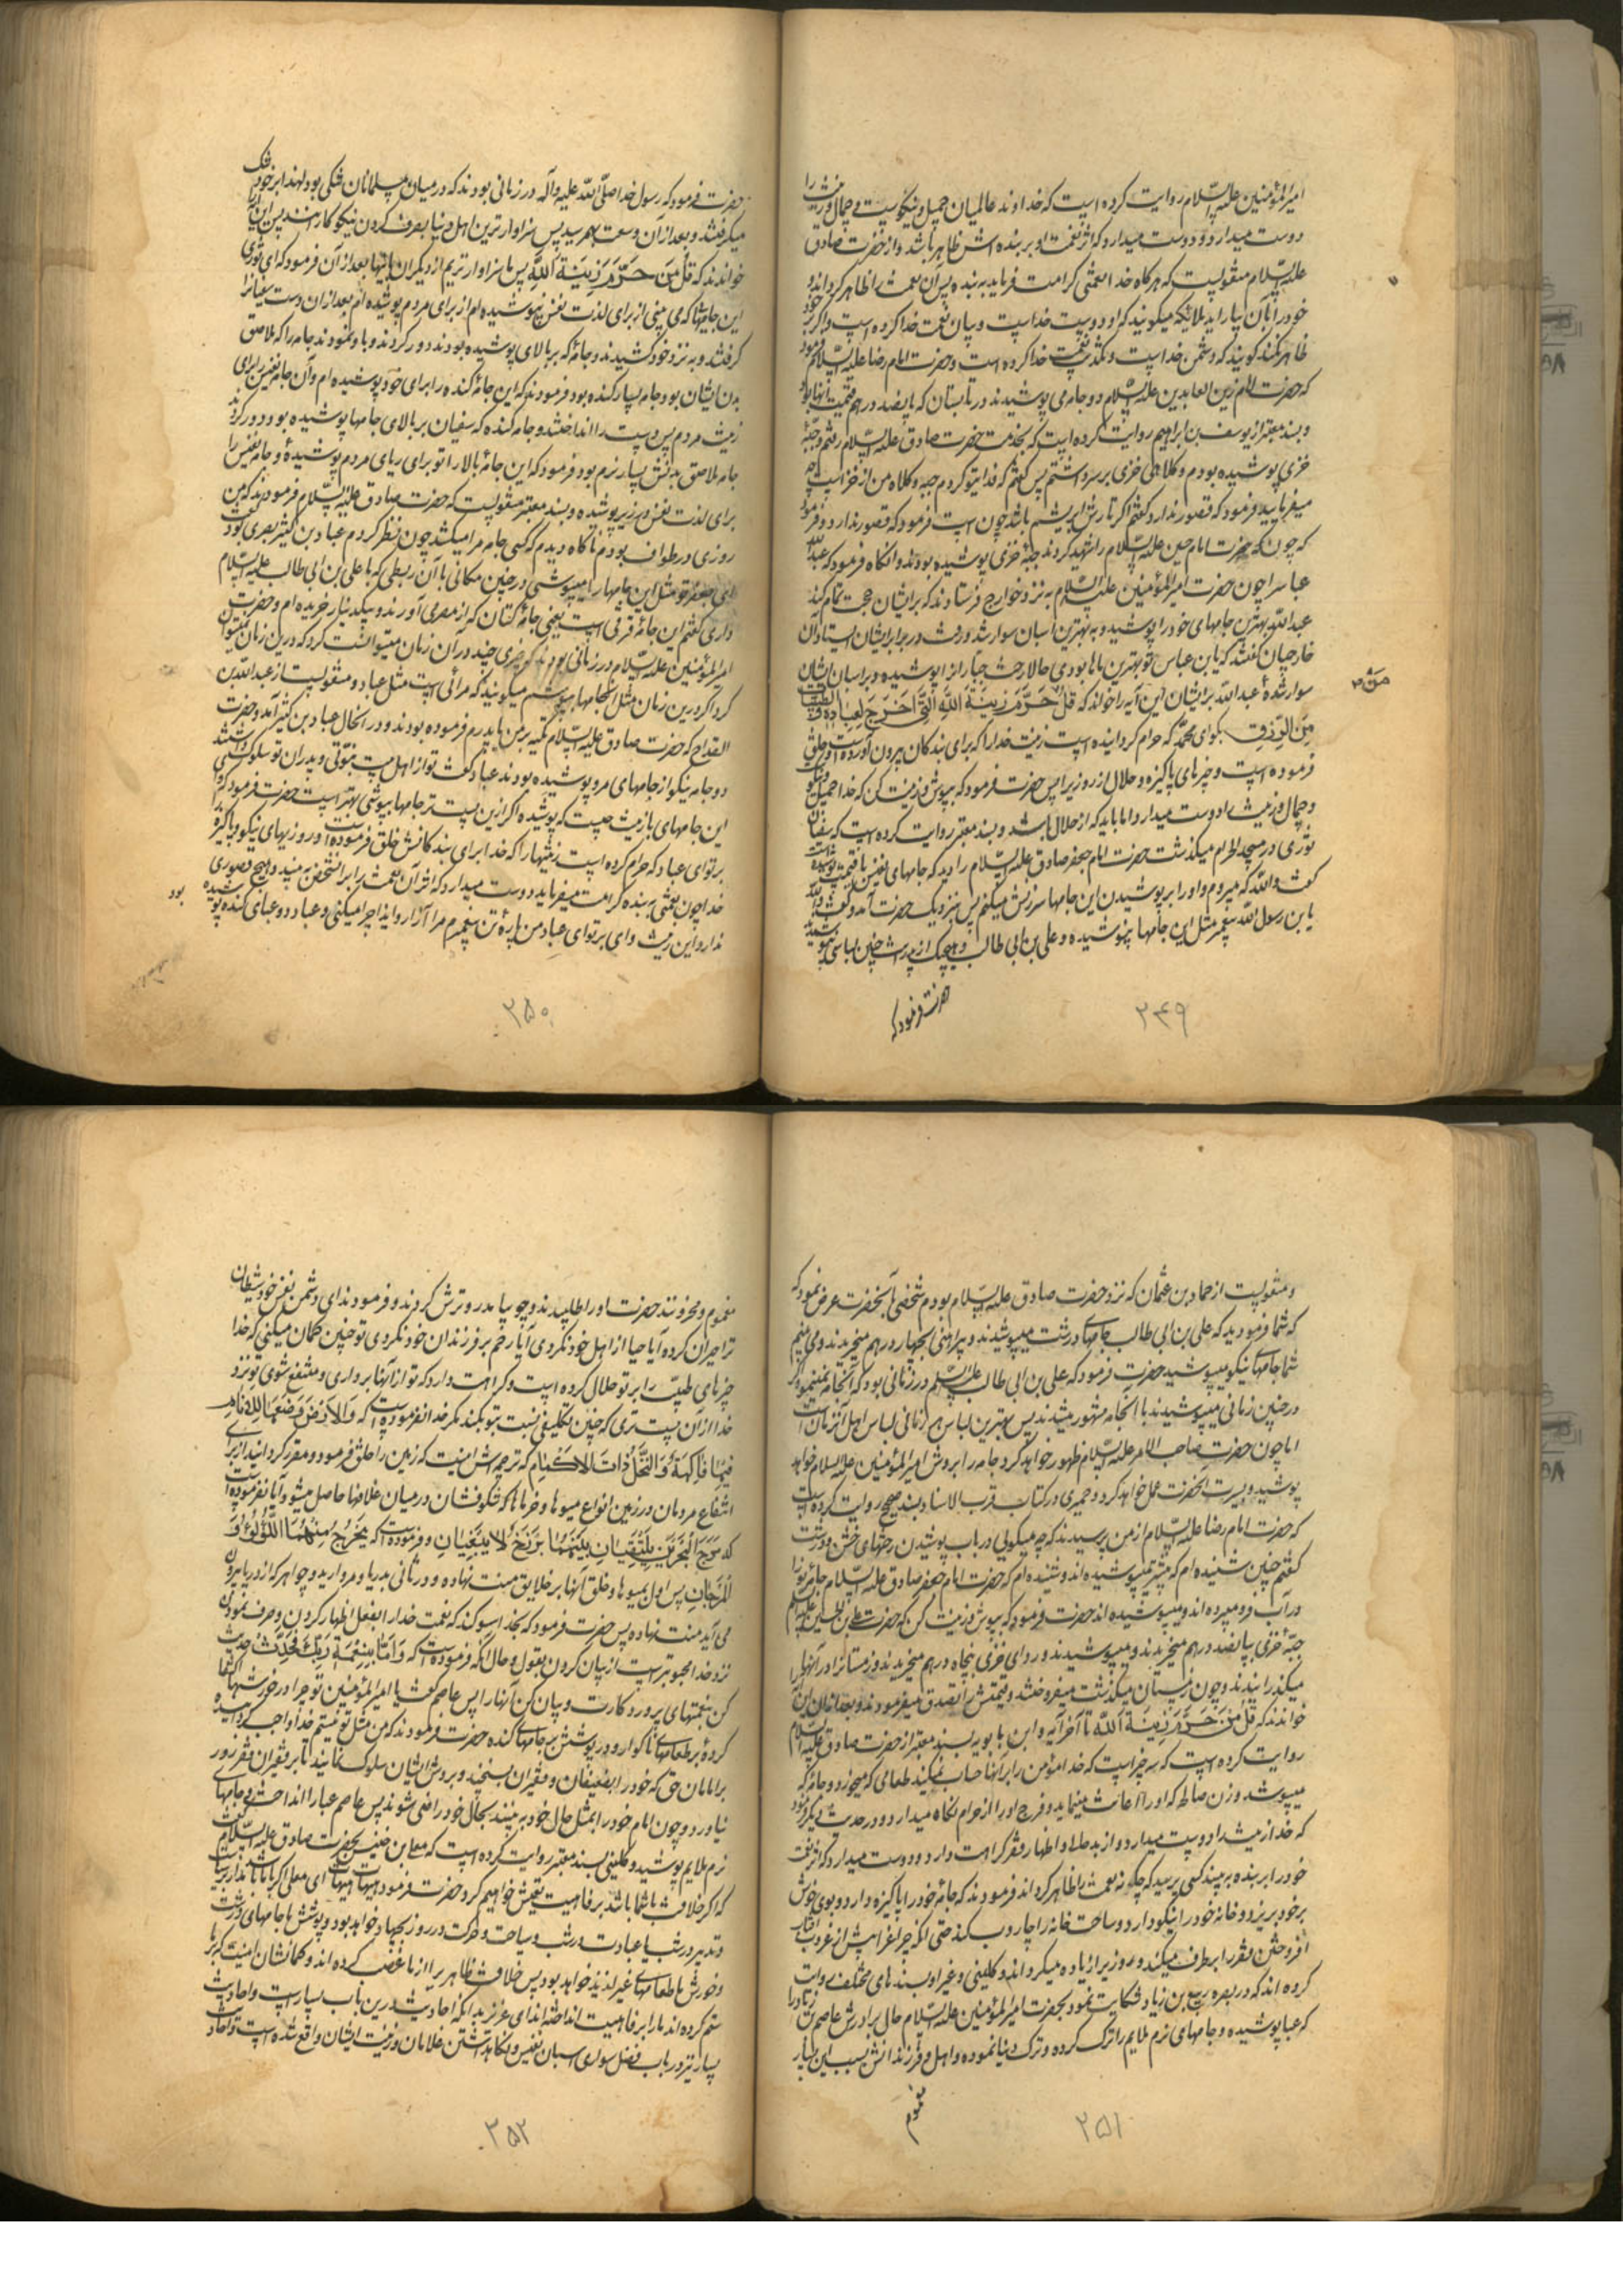 امیرالمؤمنین علیه السّلام روایت کرده است که خداوند عالمیان جمیل و نیکوست و جمال و زینت را
دوست میدارد و دوست میدارد که اثر نعمت او بر بنده اش ظاهر باشد و از حضرت صادق
علیه السّلام منقولست که هرگاه خدا نعمتی کرامت فرماید به بنده پس آن نعمت را ظاهر گرداند و
خود را بآن بیاراید ملائکه میگویند که او دوست خداست و بیان نعمت خدا کرده است و اگر
ظاهر نکند گویند که دشمن خداست و تکذیب نعمت خدا کرده است و حضرت امام رضا علیه السّلام فرمود
که حضرت امام زین العابدین علیه السّلام دو جامه می پوشیدند در تابستان که پانصد درهم قیمت آنها بود
و بسند معتبر از یوسف بن ابراهیم روایت کرده است که بخدمت حضرت صادق علیه السّلام رفتم و جبّه
خزی پوشیده بودم و کلاه خزی بر سر داشتم پس گفتم که فدای تو گردم جبه و کلاه من از خز است چه
میفرمایید فرمود که قصور ندارد گفتم اگر تارش ابریشم باشد چون است فرمود که قصور ندارد و فرمود
که چون که حضرت امام حسین علیه السّلام را شهید کردند جبّه خزی پوشیده بودند و آنگاه فرمود که عبدالله
عباس را چون حضرت امیرالمؤمنین علیه السّلام به نزد خوارج فرستادند که بر ایشان حجت تمام کند
عبدالله بهترین جامهای خود را پوشید و به بهترین اسبان سوار شد و رفت در برابر ایشان ایستاد آن
خارجیان گفتند که یا بن عباس تو بهترین ماها بودی حالا رخت جباران را پوشیده و بر اسبان ایشان
سوار شدهٔ عبدالله بر ایشان این آیه را خواند که قُلْ مَنْ حَرَّمَ زِینَةَ اللهِ الَّتِی اَخْرَجَ لِعِبَادِهِ وَ الطَّیِّبَاتِ
مِنَ الرِّزْقِ بگو ای محمّد که حرام گردانیده است زینت خدا را که برای بندگان بیرون آورده است و خلق
فرموده است و چیزهای پاکیزه و حلال از روزی را پس حضرت فرمود که بپوش و زینت کن که خدا جمیل است
و جمال و زینت را دوست میدارد اما باید که از حلال باشد و بسند معتبر روایت کرده است که سفیان
ثوری در مسجد الحرام میگذشت حضرت امام جعفر صادق علیه السّلام را دید که جامهای نفیس با قیمت پوشیده است
گفت والله که میروم و او را بر پوشیدن این جامها سرزنش میکنم پس نزدیک حضرت آمد و گفت
یا بن رسول الله پیغمبر مثل این جامها نپوشیده و علی بن ابی طالب و هیچیک از پدرانت چنین لباسی نپوشیدند
حضرت فرمود که
۲۴۹
حضرت فرمود که رسول خدا صلّی الله علیه وآله در زمانی بودند که در میان مسلمانان تنگی بود لهذا بر خود تنگ
میگرفتند و بعد از آن وسعت بهم رسید پس سزاوارترین اهل دنیا بصرف کردن نیکوکارانند پس این آیه را
خواندند که قُلْ مَنْ حَرَّمَ زِینَةَ اللهِ پس ما سزاوارتریم از دیگران باینها بعد از آن فرمود که ای ثوری
این جامها که می بینی از برای لذت نفس نپوشیده ام از برای مردم پوشیده ام بعد از آن دست سفیان را
گرفتند و به نزد خود کشیدند و جامهٔ که بر بالای پوشیده بودند دور کردند و باو نمودند جامه را که ملاصق
بدن ایشان بود جامه بسیار گنده بود فرمودند که این جامهٔ گنده را برای خود پوشیده ام و آن جامه نفیس را برای
زینت مردم پس دست را انداختند و جامه گنده که سفیان بر بالای جامها پوشیده بود دور کردند
جامه ملاصق بدنش بسیار نرم بود فرمود که این جامهٔ بالا را تو برای ریای مردم پوشیدهٔ و جامه نفیس را
برای لذت نفس در زیر پوشیده و بسند معتبر منقولست که حضرت صادق علیه السّلام فرمودند که من
روزی در طواف بودم ناگاه دیدم که کسی جامه مرا میکشد چون نظر کردم عباد بن کثیر بصری بود گفت
ای جعفر تو مثل این جامها را میپوشی در چنین مکانی با آن ربطی که با علی بن ابی طالب علیه السّلام
داری گفتم این جامهٔ قرقبی است یعنی جامهٔ کتان که از مصر می آورند و بیکدینار خریده ام و حضرت
امیرالمؤمنین علیه السّلام در زمانی بودند که هر چیزی در آن زمان میتوانست کرد که درین زمان نمیتوان
کرد اگر درین زمان مثل آنجامها بپوشم میگویند که مرائی است مثل عباد و منقولست از عبدالله بن
القداح که حضرت صادق علیه السّلام تکیه بر من یا پدرم فرموده بودند و در آنحال عباد بن کثیر آمد و حضرت
دو جامه نیکو از جامهای مرو پوشیده بودند عباد گفت تو از اهل بیت نبوّتی و پدران تو سلوکی داشتند
این جامهای با زینت چیست که پوشیده اگر ازین پست تر جامها بپوشی بهتر است حضرت فرمود که وای
بر تو ای عباد که حرام کرده است زینتها را که خدا برای بندگانش خلق فرموده است و روزیهای نیکو و پاکیزه
خدا چون نعمتی به بنده کرامت میفرماید دوست میدارد که اثر آن نعمت را بر آن شخص به بیند و هیچ قصوری
ندارد این زینت وای بر تو ای عباد من پارهٔ تن پیغمبرم مرا آزار و ایذا چرا میکنی و عباد دو عبای گنده پوشیده بود
۲۵۰
و منقولست از حماد بن عثمان که نزد حضرت صادق علیه السّلام بودم شخصی بآنحضرت عرض نمود که
که شما فرمودید که علی بن ابی طالب جامهای درشت میپوشیدند و پیراهنی بچهار درهم میخریدند و می بینیم
شما جامهای نیکو میپوشید حضرت فرمود که علی بن ابی طالب علیه السّلام در زمانی بود که آنجامه نمینمود اگر
در چنین زمانی میپوشیدند با آنجامه مشهور میشدند پس بهترین لباس هر زمانی لباس اهل آنزمان است
اما چون حضرت صاحب الامر علیه السّلام ظهور خواهد کرد جامه را بروش امیرالمؤمنین علیه السلام خواهد
پوشید و بسیرت آنحضرت عمل خواهد کرد و حمیری در کتاب قرب الاسناد بسند صحیح روایت کرده است
که حضرت امام رضا علیه السّلام از من پرسیدند که چه میگوئی در باب پوشیدن رختهای خشن و درشت
گفتم چنین شنیده ام که پیشتر میپوشیده اند و شنیده ام که حضرت امام جعفر صادق علیه السّلام جامه نو را
در آب فرو میبرده اند و میپوشیده اند حضرت فرمود که بپوش و زینت کن که حضرت علی بن الحسین علیه السّلام
جبّهٔ خزی بپانصد درهم میخریدند و میپوشیدند و ردای خزی بپنجاه درهم میخریدند و زمستانرا در آنها
میگذرانیدند و چون زمستان میگذشت میفروختند و قیمتش را تصدق میفرمودند و بعد از آن این آیه را
خواندند که قُلْ مَنْ حَرَّمَ زِینَةَ اللهِ تا آخر آیه و ابن بابویه بسند معتبر از حضرت صادق علیه السّلام
روایت کرده است که سه چیز است که خدا مؤمن را بر آنها حساب نمیکند طعامی که میخورد و جامهٔ که
میپوشد و زن صالحه که او را اعانت مینماید و فرج او را از حرام نگاه میدارد و در حدیث دیگر فرمود
که خدا زینت را دوست میدارد و از بدحالی و اظهار فقر کراهت دارد و دوست میدارد که اثر نعمت
خود را بر بنده به بیند کسی پرسید که چگونه نعمت را ظاهر گرداند فرمودند که جامهٔ خود را پاکیزه دارد و بوی خوش
بر خود بریزد و خانه خود را نیکو دارد و ساحت خانه را جاروب کند حتی آنکه چراغ را پیش از غروب آفتاب
افروختن فقر را برطرف میکند و روزی را زیاده میگرداند و کلینی و غیر او بسندهای مختلف روایت
کرده اند که در بصره ربیع بن زیاد شکایت نمود بحضرت امیرالمؤمنین علیه السّلام حال برادرش عاصم بن زیاد را
که عبا پوشیده و جامهای نرم ملایم را ترک کرده و ترک دنیا نموده و اهل و فرزندانش بسبب این بسیار
مغموم
۲۵۱
مغموم و محزونند حضرت او را طلبیدند و چو بیامد رو ترش کردند و فرمودند ای دشمن نفس خود شیطان
ترا حیران کرده آیا حیا از اهل خود نکردی آیا رحم بر فرزندان خود نکردی تو چنین گمان میکنی که خدا
چیزهای طیب را بر تو حلال کرده است و کراهت دارد که تو از آنها برداری و منتفع شوی تو نزد
خدا از آن پست تری که چنین تکلیفی نسبت بتو بکند مگر خدا نفرموده است که وَالْاَرْضَ وَضَعَهَا لِلْاَنَامِ
فِیهَا فَاکِهَةٌ وَ النَّخْلُ ذَاتُ الْاَکْمَامِ که ترجمه اش اینست که زمین را خلق فرمود و مقرر گردانید از برای
انتفاع مردمان و در زمین انواع میوها و خرماها که شکوفشان در میان غلافها حاصل میشود آیا نفرموده است
که مَرَجَ الْبَحْرَیْنِ یَلْتَقِیَانِ بَیْنَهُمَا بَرْزَخٌ لَا یَبْغِیَانِ و فرموده است که یَخْرُجُ مِنْهُمَا اللُّؤْلُؤُ وَ
الْمَرْجَانُ پس اول بمیوها و خلق آنها بر خلایق منت نهاده و در ثانی بدریا و مروارید و جواهر که از دریا بیرون
می آید منت نهاده پس حضرت فرمود که بخدا سوگند که نعمت خدا را بفعل اظهار کردن و صرف نمودن
نزد خدا محبوبتر است از بیان کردن بقول و حال آنکه فرموده است که وَ اَمَّا بِنِعْمَةِ رَبِّکَ فَحَدِّثْ حدیث
کن بنعمتهای پروردگارت و بیان کن آنها را پس عاصم گفت یا امیرالمؤمنین تو چرا در خورش اکتفا
کردهٔ بر طعامهای ناگوار و در پوشش بر جامهای گنده حضرت فرمودند که من مثل تو نیستم خدا واجب گردانیده
بر امامان حق که خود را بضعیفان و فقیران بسنجند و بروش ایشان سلوک نمایند تا بر فقیران فقر زور
نیاورد و چون امام خود را بمثل حال خود به بینند بحال خود راضی شوند پس عاصم عبا را انداخت و جامهای
نرم ملایم پوشید و کلینی بسند معتبر روایت کرده است که معلی بن خنیس بحضرت صادق علیه السّلام گفت
که اگر خلافت با شما باشد برفاهیت تعیش خواهیم کرد حضرت فرمود هیهات هیهات ای معلی اگر با ما باشد
و تدبیر در شب یا عبادت در شب و سیاحت و حرکت در روز بجهاد خواهد بود و پوشش ما جامهای درشت
و خورش ما طعامهای غیر لذیذ خواهد بود پس خلافت ظاهر را از ما غصب کرده اند و گمانشان اینست که بر ما
ستم کرده اند ما را برفاهیت انداخته اند ای عزیز بدانکه احادیث درین باب بسیار است و احادیث
بسیار نیز در باب فضل سواری اسبان نفیس و نگاهداشتن غلامان و زینت ایشان واقع شده است و احادیث
۲۵۲